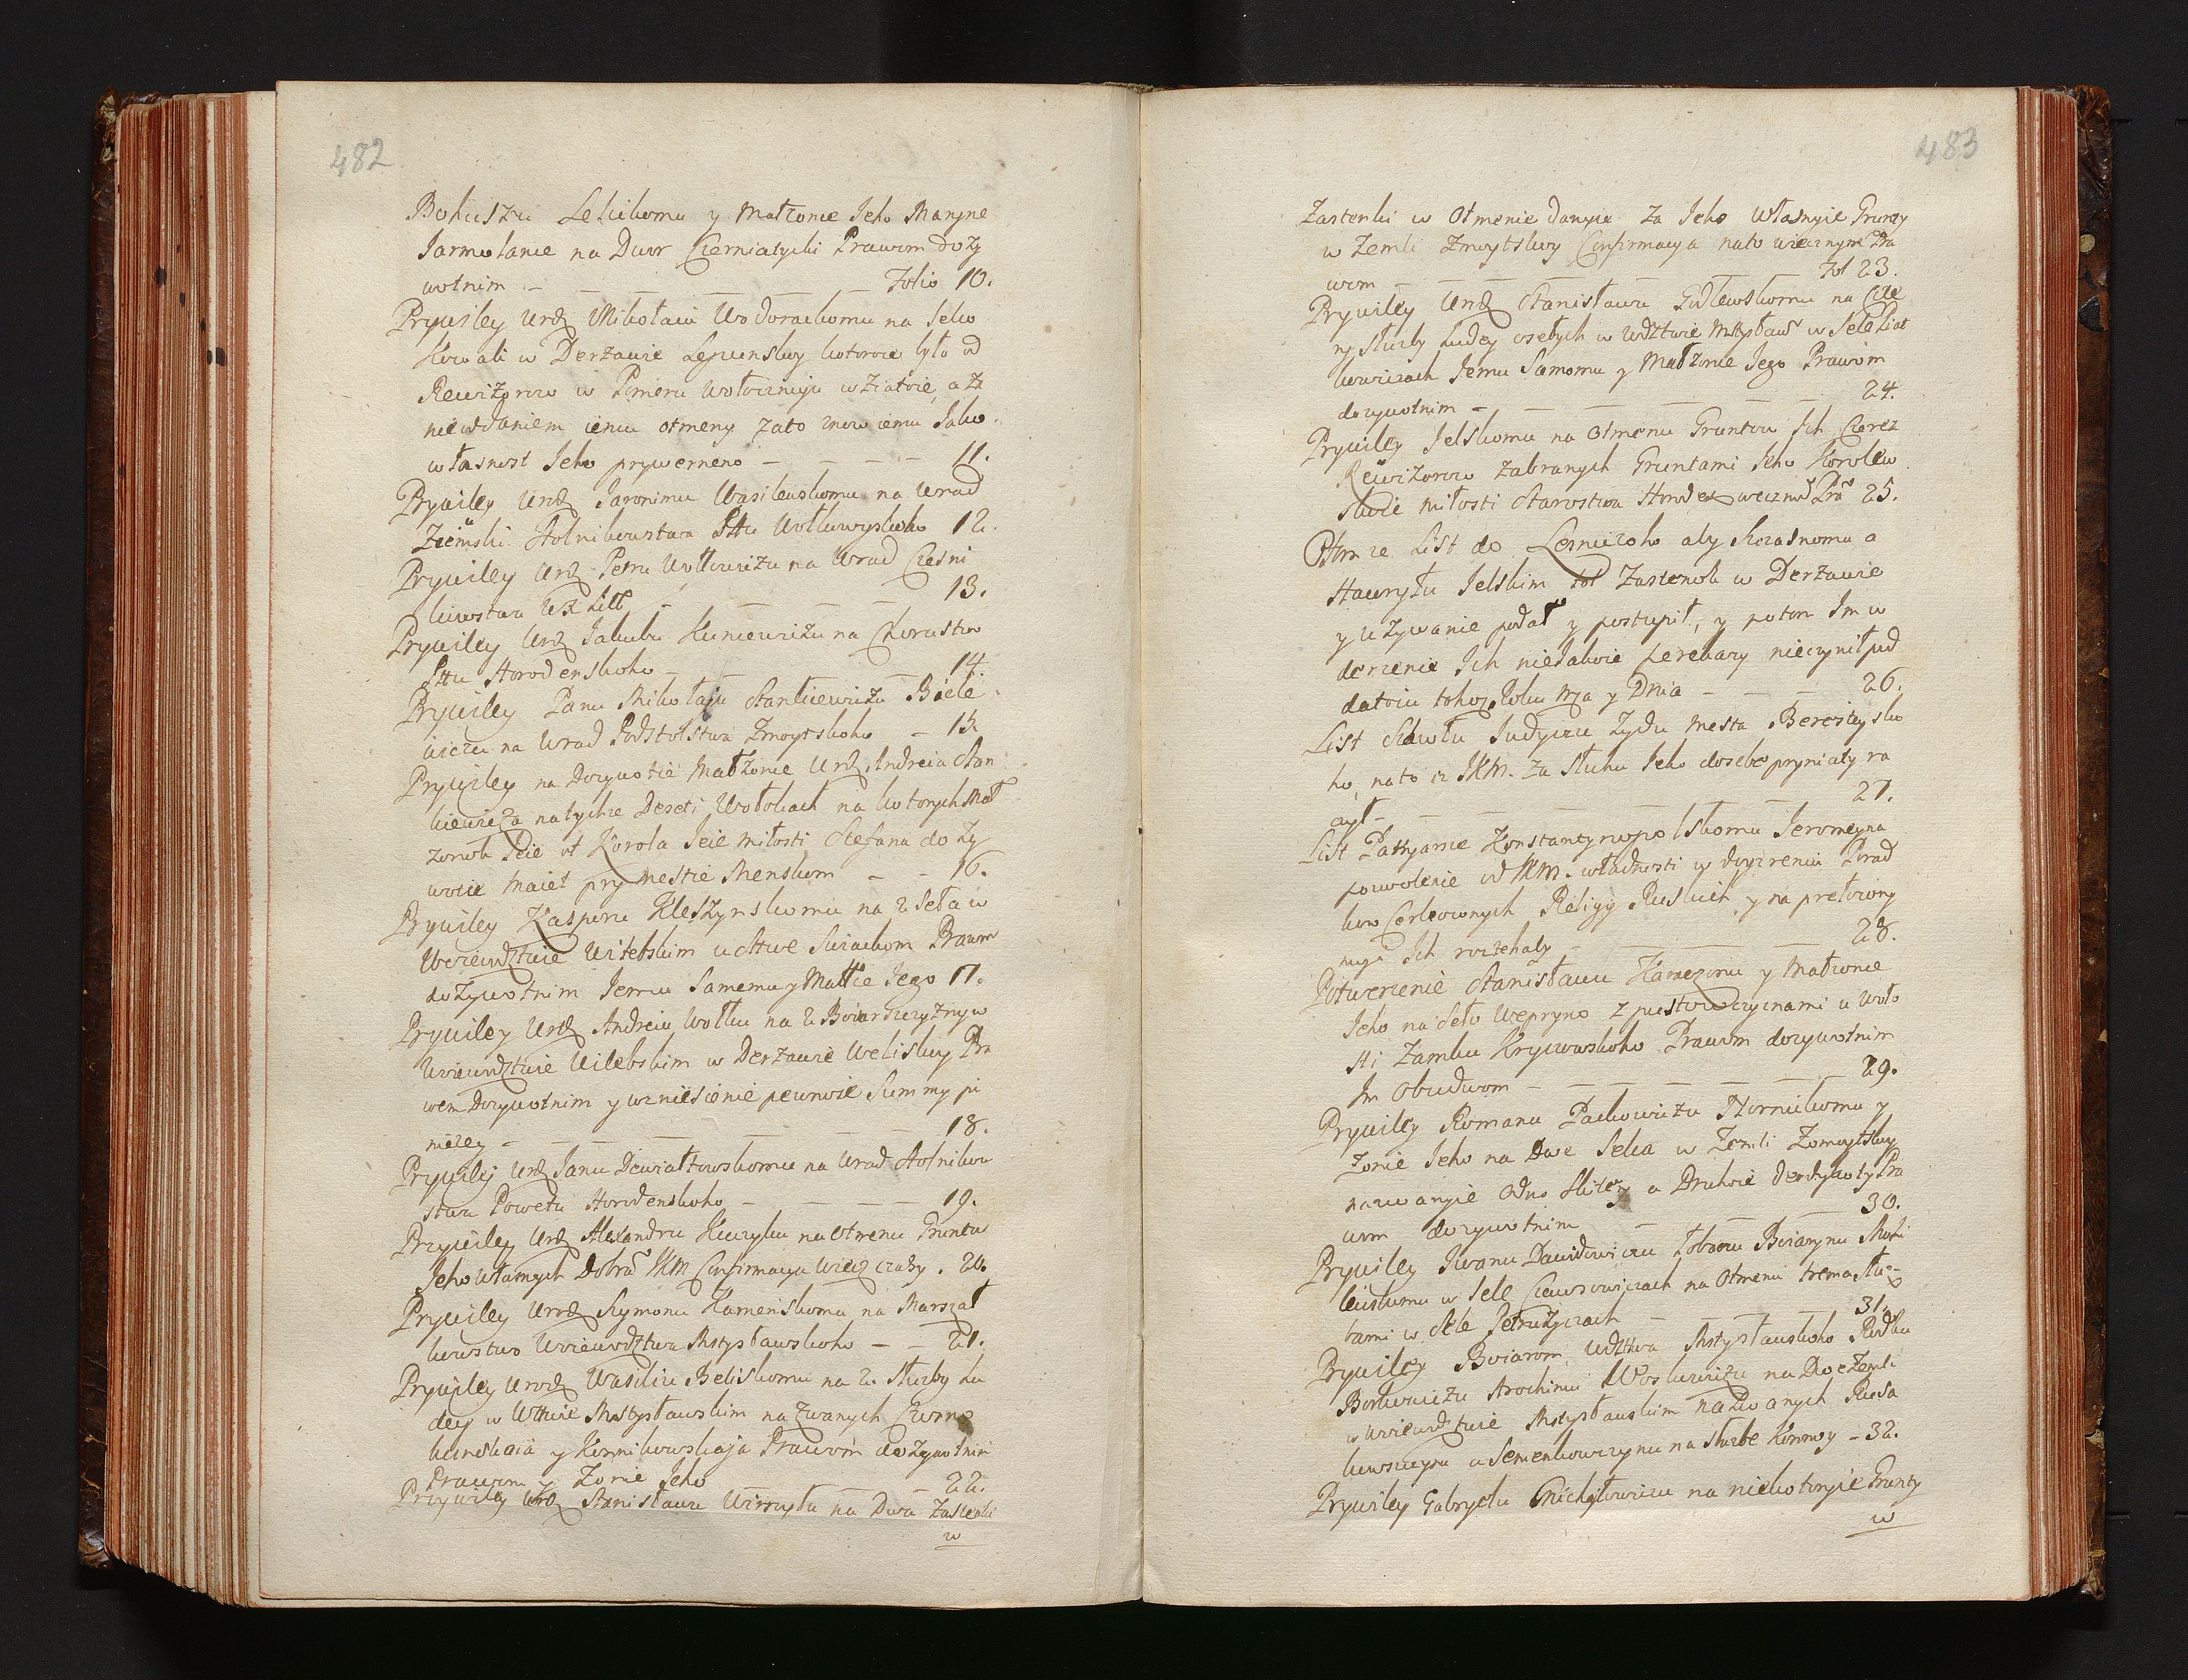 482
Bohuszu Lekickomu y Małżonce Jeho Maryne
Jarmolance na Dwor Czerniatycki Prawom doży
wotnim - - - - - Folio 10.
Prywiley Urż Mikołaiu Wodorackomu na Selco
Kowali w Derżawie Lepunskoy kotoroie było od
Rewizorow w Pomeru Wołocznuju wziatoie, a za
nie oddaniem iemu otmeny zato znow iemu Jako
własnost Jeho prywerneno - - - - 11.
Prywiley Urż Jaronimu Wasilewskomu na Urad
Ziemski Stolnikowstwa Pttu Wołkowyskoho 12.
Prywiley Urż Petru Wołłowiczu na Urad Czesni
kowstwa WX Litt - - - - 13.
Prywiley Urż Jakubu Kuncewiczu na Chorustwo
Pttu Horodenskoho - - - - 14.
Prywiley Panu Mikołaju Stankiewiczu Biele
wiczu na Urad Podstolstwa Żmoytskoho - 15.
Prywiley na Dożywotie Małżonce Urż Andreia Stan
kiewicza na tychże Deseti Wołokach na kotorych Mał
żonok Jeie ot Korola Jeie Miłosti Stefana doży
wocie maiet pry Mestie Menskom - - 16.
Prywiley Kasperu Kleszynskomu na 2 Seła w
Woiewodztwie Witebskim u Sttwe Surackom Prawm
dożywotnim Jemu Samemu y Małłce Jego 17.
Prywiley Urż Andreiu Wołku na 2 Boiarszczyzny w
Woiewodztwie Witebskim w Derżawie Weliskoy Pra
wem Dożywotnim y wzniesienie pewnoie Summy pi
niezey - - - - - 18.
Prywiley Urż Janu Dewiałtowskomu na Urad Stolniko
stwa Powetu Horodenskoho - - - - 19.
Przywiley Urż Alexandru Kurzyku na Otmenu Gruntu
Jeho własnych Dobra JKM Confirmacya wiecz czasy. 20.
Prywiley Urodż Szymonu Kamenskomu na Marszał
kowstwo Woiewodztwa Mstysławskoho - - 21.
Prywiley Urodż Wasiliu Beliskomu na 2 Służby Lu
dey w Wttwie Mstysławskim nazwanych Czorno
kunskaia y Konnikowskaja Prawom dożywotnim
Prawom y Żonie Jeho - - 22.
Prywiley Urż Stanisławu Wirszyłu na Dwa Zastenki
w
483
Zastenki w Otmenie danyie za Jeho własnyie Grunty
w Zemli Żmoytskoy Confirmacya na to wiecznym Pra
wom - - - - - Fol 23.
Prywiley Urż Stanisławu Gudlewskomu na Cże
ry służby Ludey osełych w Wdztwie Mstysław w Sele Liat
kowiczach Jemu Samomu y Małżonce Jego Prawom
dożywotnim - - - - - 24.
Prywiley Jelskomu na Otmenu Gruntow Ich Czerez
Rewizorow zabranych Gruntami Jeho Korolew
skoie miłosti Starostwa Horodex weczno Pra 25.
Ottom ze List do Lesniczoho aby Krasnomu a
Hawryłu Jelskim tot Zastenok w Derżanie
y używanie podał y postupił, y potom Im w
derżenie Ich nieiakoie perekazy nieczynił pod
datoiu tohoż Roku Mca y Dnia - - - 26.
List Szawłu Judyczu Żydu mesta Berestejsko
ho, na to iż JKM. za Sługu Jeho do sebe pryniaty ra
czył - - - - - 27.
List Patryarse Konstantynopolskomu Jeromeyna
pozwolenie od JKM. władnosti w doyzreniu Porad
kow Cerkownych Religij Ruskich y na prełożony
mi Ich rozżehały - - - - 28.
Potwerżenie Stanisławu Karaczonu y Małżonce
Jeho na Seło Wepryno z pustowczyznami u Woło
sti Zamku Kryczewskoho Prawom dożywotnim
Im Obudwom - - - - - 29.
Prywiley Romanu Packowiczu Horniekomu y
Żonie Jeho na Dwe Selca w Zemli Żomoytskoy
nazwanyie Odno Skilezy a Druhoie Derdywoły Pra
wom dożywotnim - - - - 30.
Prywiley Iwanu Dawidowiczu Łobanu Boiarynu Mohi
lewskomu w Sele Czewsowiczach na Otmenu trema Służ-
bami w Sele Petrużyczach - - - 31.
Prywiley Boiarom Wdztwa Mstysławskoho Redku
Borkowiczu Arochimu Woskowiczu na Dwe Zemli
w Woiewodztwie Mstysławskim nazwanych Ruda
kowszczyzu a Semenkowczynu na służbe Konnoy - 32.
Prywiley Gabryelu Michajłowiczu na niekotoryie Grunty
w